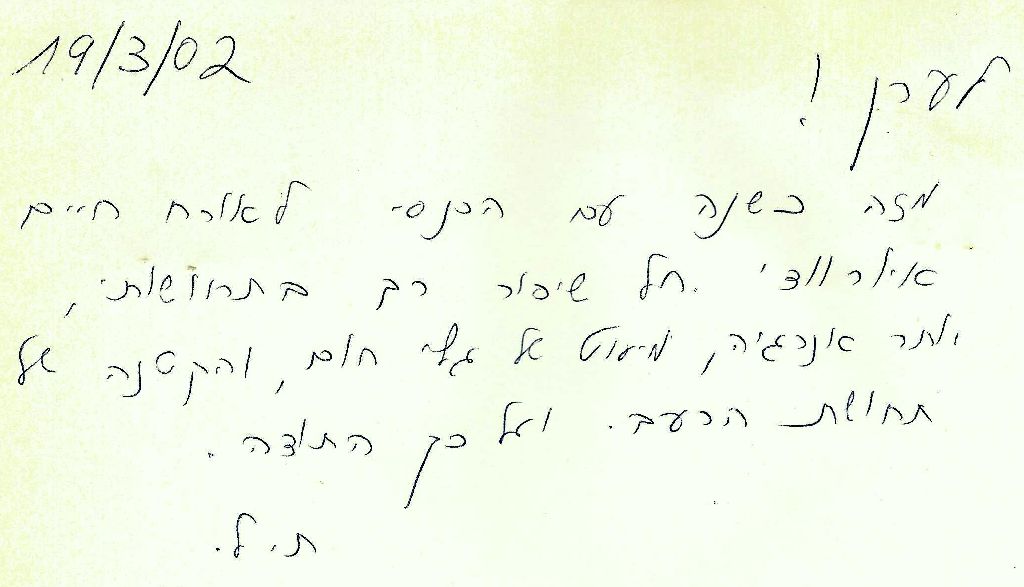 19/3/02
לערן !
מזה כשנה עם הכנסי לאורח חיים
איורוודי. חל שיפור רב בתחושותי,
יותר אנרגיה, מיעוט של גלי חום, והקטנה של
תחושת הרעב. ועל כך התודה.
ת. ל.